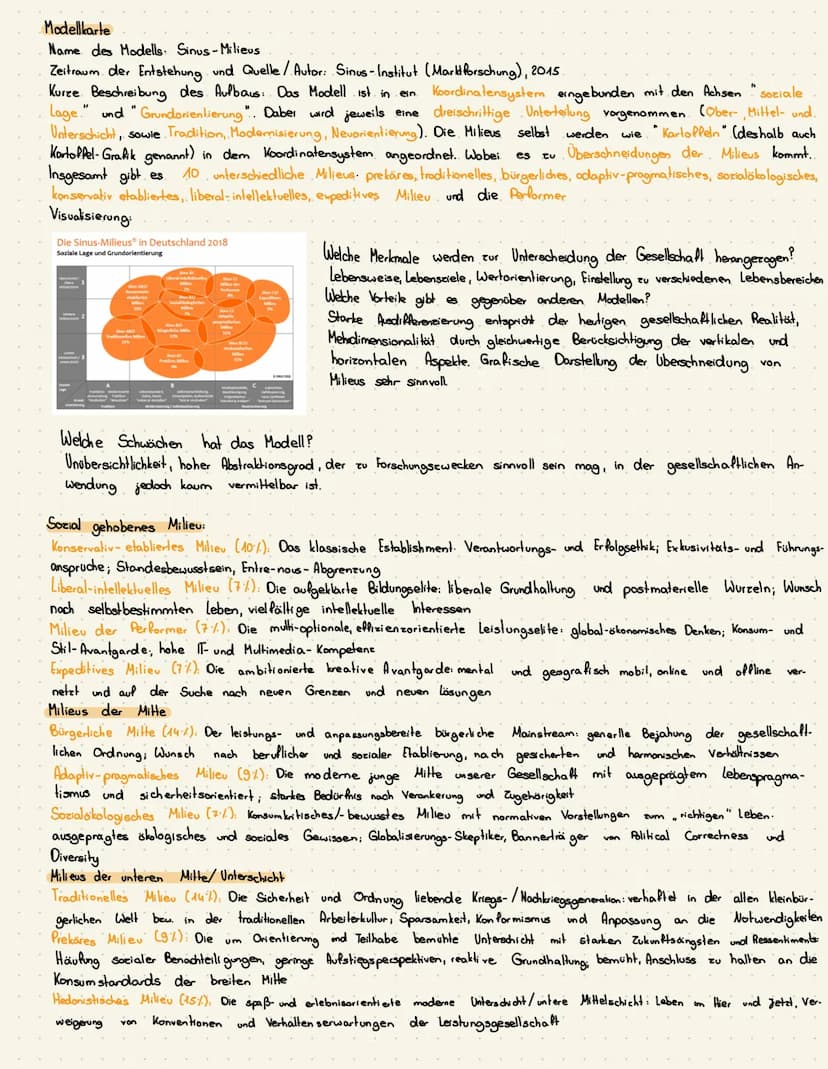 Modellkarte
Name des Modells: Sinus-Milieus
Zeitraum der Entstehung und Quelle/Autor: Sinus-Institut (Marktforschung), 2015
Kurze Beschreibung des Aufbaus: Das Modell ist in ein Koordinatensystem eingebunden mit den Achsen "soziale
Lage" und "Grundorientierung". Dabei wird jeweils eine dreischrittige Unterteilung vorgenommen (Ober-, Mittel- und
Unterschicht, sowie Tradition, Modernisierung, Neuorientierung). Die Milieus selbst werden wie "Kartoffeln" (deshalb auch
Kartoffel-Grafik genannt) in dem Koordinatensystem angeordnet. Wobei es zu Überschneidungen der Milieus kommt.
Insgesamt gibt es 10 unterschiedliche Milieus: prekäres, traditionelles, bürgerliches, adaptiv-pragmatisches, sozialökologisches,
konservativ etabliertes, liberal-intellektuelles, expeditives Milieu und die Performer
Visualisierung:
Die Sinus-Milieus® in Deutschland 2018
Soziale Lage und Grundorientierung
Welche Merkmale werden zur Unterscheidung der Gesellschaft herangezogen?
Lebensweise, Lebensziele, Wertorientierung, Einstellung zu verschiedenen Lebensbereichen
Welche Vorteile gibt es gegenüber anderen Modellen?
Starke Ausdifferenzierung entspricht der heutigen gesellschaftlichen Realität,
Mehdimensionalität durch gleichwertige Berücksichtigung der vertikalen und
horizontalen Aspekte. Grafische Darstellung der Überschneidung von
Milieus sehr sinnvoll
Welche Schwächen hat das Modell?
Unübersichtlichkeit, hoher Abstraktionsgrad, der zu Forschungszwecken sinnvoll sein mag, in der gesellschaftlichen An-
wendung jedoch kaum vermittelbar ist.
Sozial gehobenes Milieu:
Konservativ-etabliertes Milieu (10%): Das klassische Establishment: Verantwortungs- und Erfolgsethik; Exkusivitäts- und Führungs-
ansprüche; Standesbewusstsein, Entre-nous-Abgrenzung
Liberal-intellektuelles Milieu (7%): Die aufgeklärte Bildungselite: liberale Grundhaltung und postmaterielle Wurzeln; Wunsch
nach selbstbestimmten Leben, vielfältige intellektuelle Interessen
Milieu der Performer (7%): Die multi-optionale, effizienzorientierte Leistungselite: global-ökonomisches Denken; Konsum- und
Stil-Avantgarde; hohe IT- und Multimedia-Kompetenz
Expeditives Milieu (7%): Die ambitionierte kreative Avantgarde: mental und geografisch mobil, online und offline ver-
netzt und auf der Suche nach neuen Grenzen und neuen Lösungen
Milieus der Mitte
Bürgerliche Mitte (14%): Der leistungs- und anpassungsbereite bürgerliche Mainstream: generlle Bejahung der gesellschaft-
lichen Ordnung; Wunsch nach beruflicher und sozialer Etablierung, nach gesicherten und harmonischen Verhältnissen
Adaptiv-pragmatisches Milieu (9%): Die moderne junge Mitte unserer Gesellschaft mit ausgeprägtem Lebenspragma-
tismus und sicherheitsorientiert; starkes Bedürfnis nach Verankerung und Zugehörigkeit
Sozialökologisches Milieu (7%): Konsumkritisches/-bewusstes Milieu mit normativen Vorstellungen zum „richtigen" Leben:
ausgeprägtes ökologisches und soziales Gewissen; Globalisierungs-Skeptiker, Bannerträger von Political Correctness und
Diversity
Milieus der unteren Mitte/Unterschicht
Traditionelles Milieu (14%): Die Sicherheit und Ordnung liebende Kriegs-/Nachkriegsgeneration: verhaftet in der alten kleinbür-
gerlichen Welt bzw. in der traditionellen Arbeiterkultur; Sparsamkeit, Konformismus und Anpassung an die Notwendigkeiten
Prekäres Milieu (9%): Die um Orientierung und Teilhabe bemühte Unterschicht mit starken Zukunftsängsten und Ressentiments:
Häufung sozialer Benachteiligungen, geringe Aufstiegsperspektiven, reaktive Grundhaltung; bemüht, Anschluss zu halten an die
Konsumstandards der breiten Mitte
Hedonistisches Milieu (15%): Die spaß- und erlebnisorientierte moderne Unterschicht/untere Mittelschicht: Leben im Hier und Jetzt, Ver-
weigerung von Konventionen und Verhaltenserwartungen der Leistungsgesellschaft